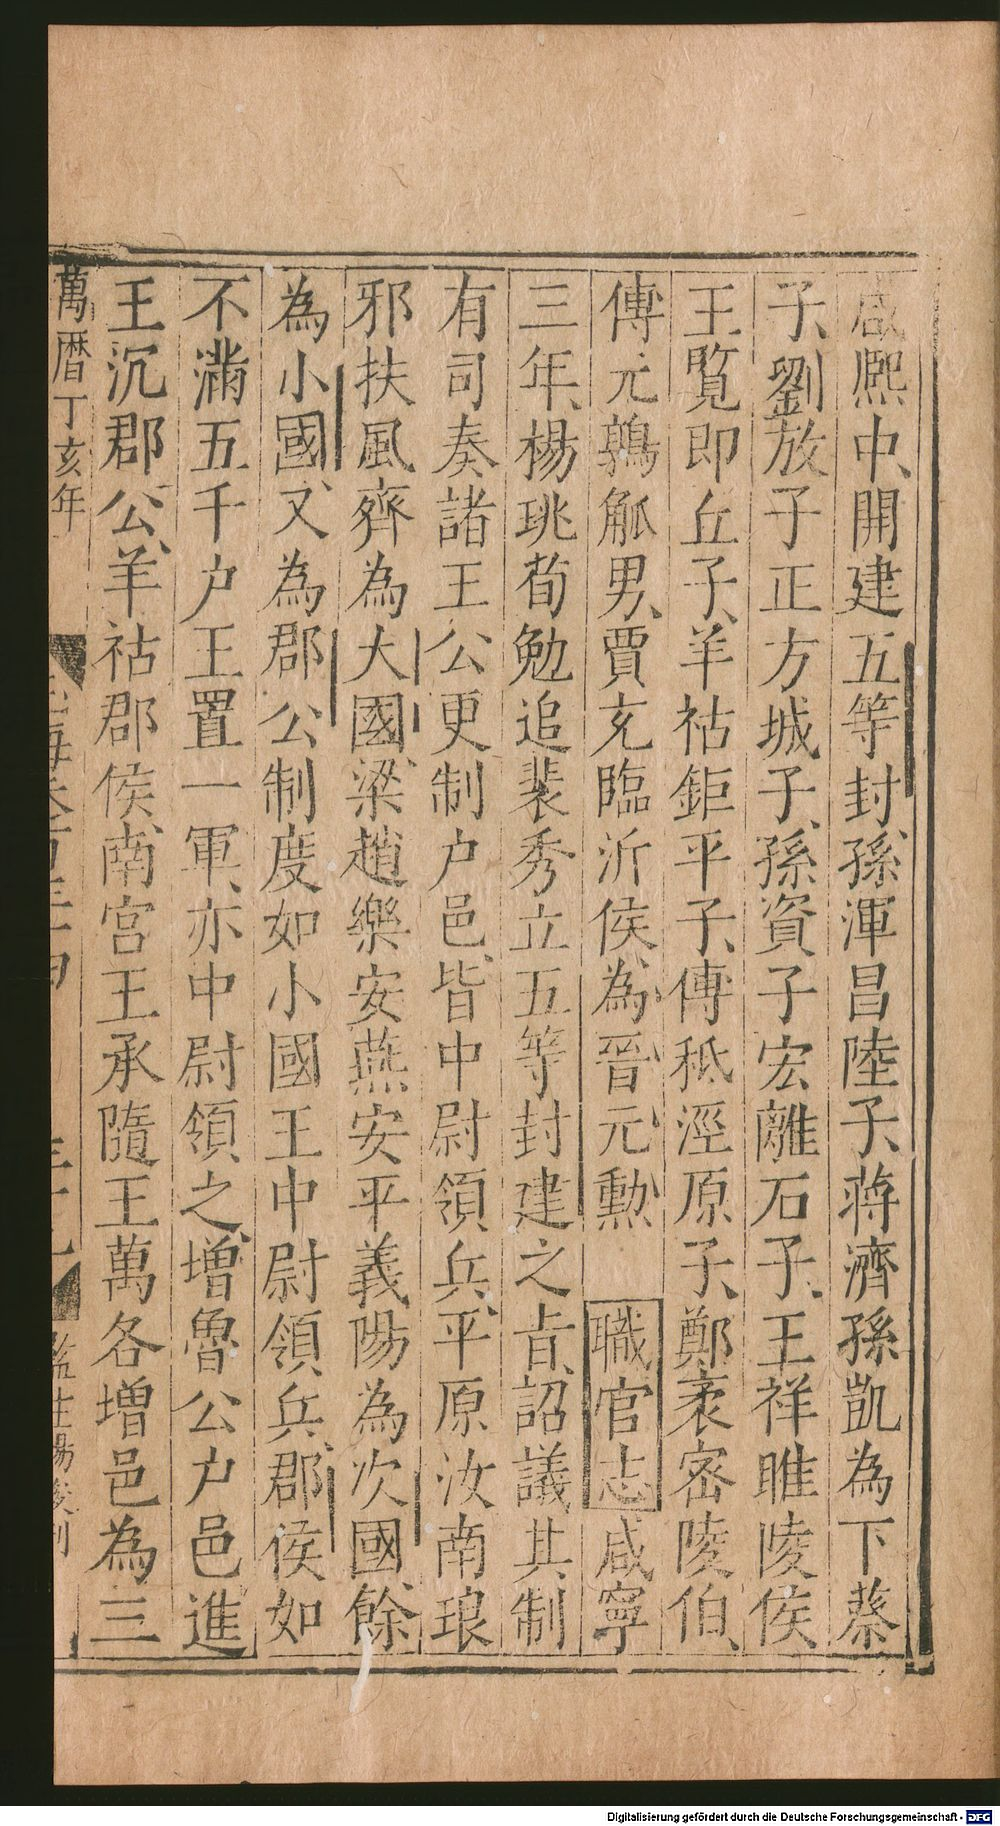 咸熙中、開建五等封、孫渾昌陸子、蔣濟孫凱為下蔡
子、劉放子正方城子、孫資子宏離石子、王祥睢陵侯
王覽即丘子、羊祜鉅平子、傅秪涇原子、鄭袤密陵伯、
傅元鶉觚男、賈充臨沂侯、為晉元勲 職官志 咸寧
三年、楊珧荀勉追裴秀立五等封建之旨、詔議其制
有司奏諸王公更制户邑、皆中尉領兵、平原汝南琅
邪扶風齊為大國、梁趙樂安燕安平義陽為次國、餘
為小國、又為郡公制度如小國王中尉領兵、郡侯如
不滿五千户王置一軍、亦中尉領之、增魯公户邑進
王沉郡公、羊祜郡侯、南宮王承隨王萬各增邑為三
萬曆丁亥年
玉海卷百三十四
監生楊
Digitalisierung gefördert durch die Deutsche Forschungsgemeinschaft - DFG